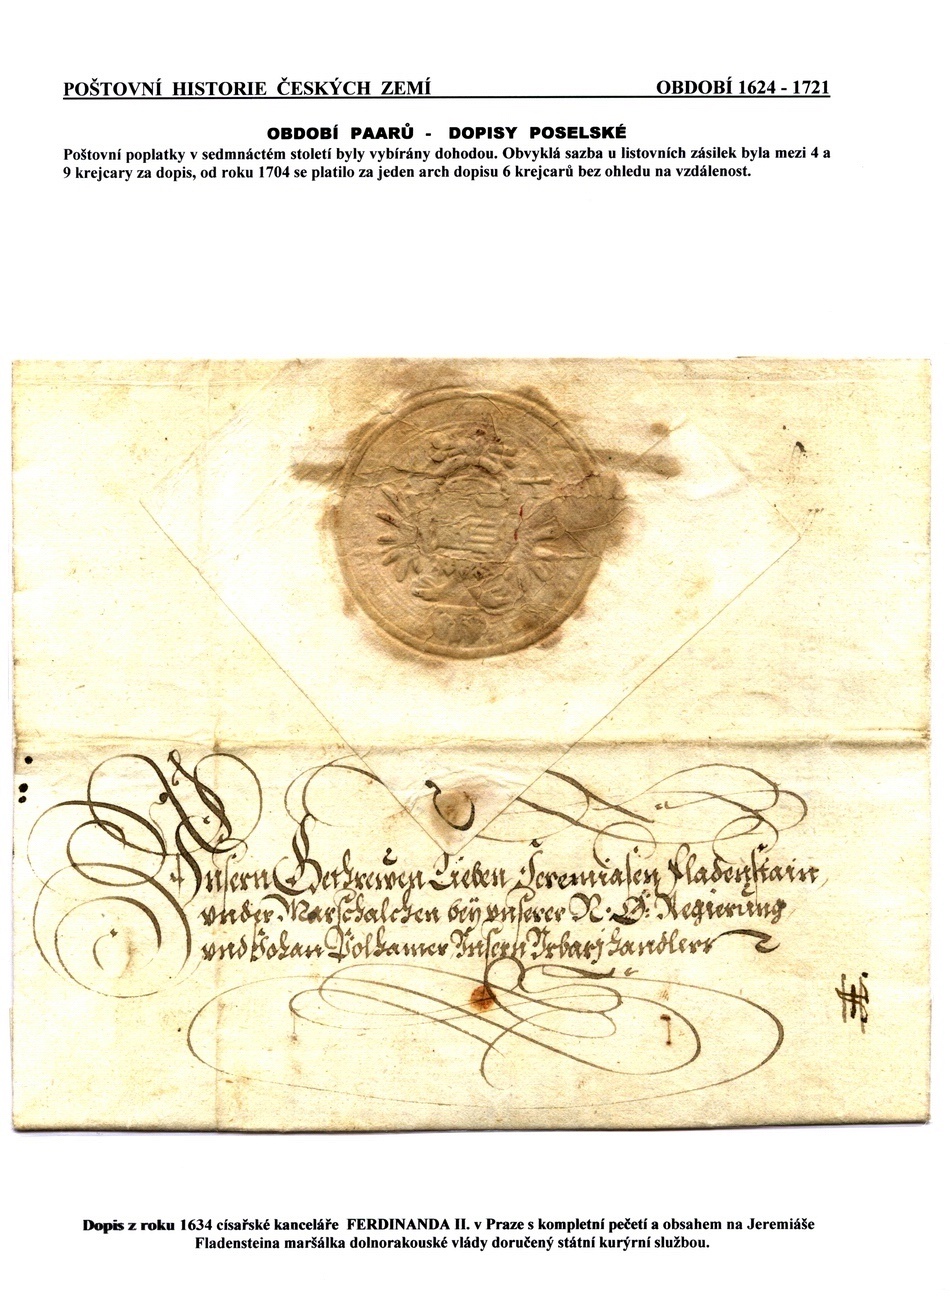 POŠTOVNÍ HISTORIE ČESKÝCH ZEMÍ OBDOBÍ 1624 - 1721
OBDOBÍ PAARŮ - DOPISY POSELSKÉ
Poštovní poplatky v sedmnáctém století byly vybírány dohodou. Obvyklá sazba u listovních zásilek byla mezi 4 a
9 krejcary za dopis, od roku 1704 se platilo za jeden arch dopisu 6 krejcarů bez ohledu na vzdálenost.
Unsern Getrewen Lieben Jeremiasen Pladenstain,
vnder Marschalchen beÿ vnserer N: Ö: Regierung
vnd Johan Volkamer Unsern
Dopis z roku 1634 císařské kanceláře FERDINANDA II. v Praze s kompletní pečetí a obsahem na Jeremiáše
Fladensteina maršálka dolnorakouské vlády doručený státní kurýrní službou.